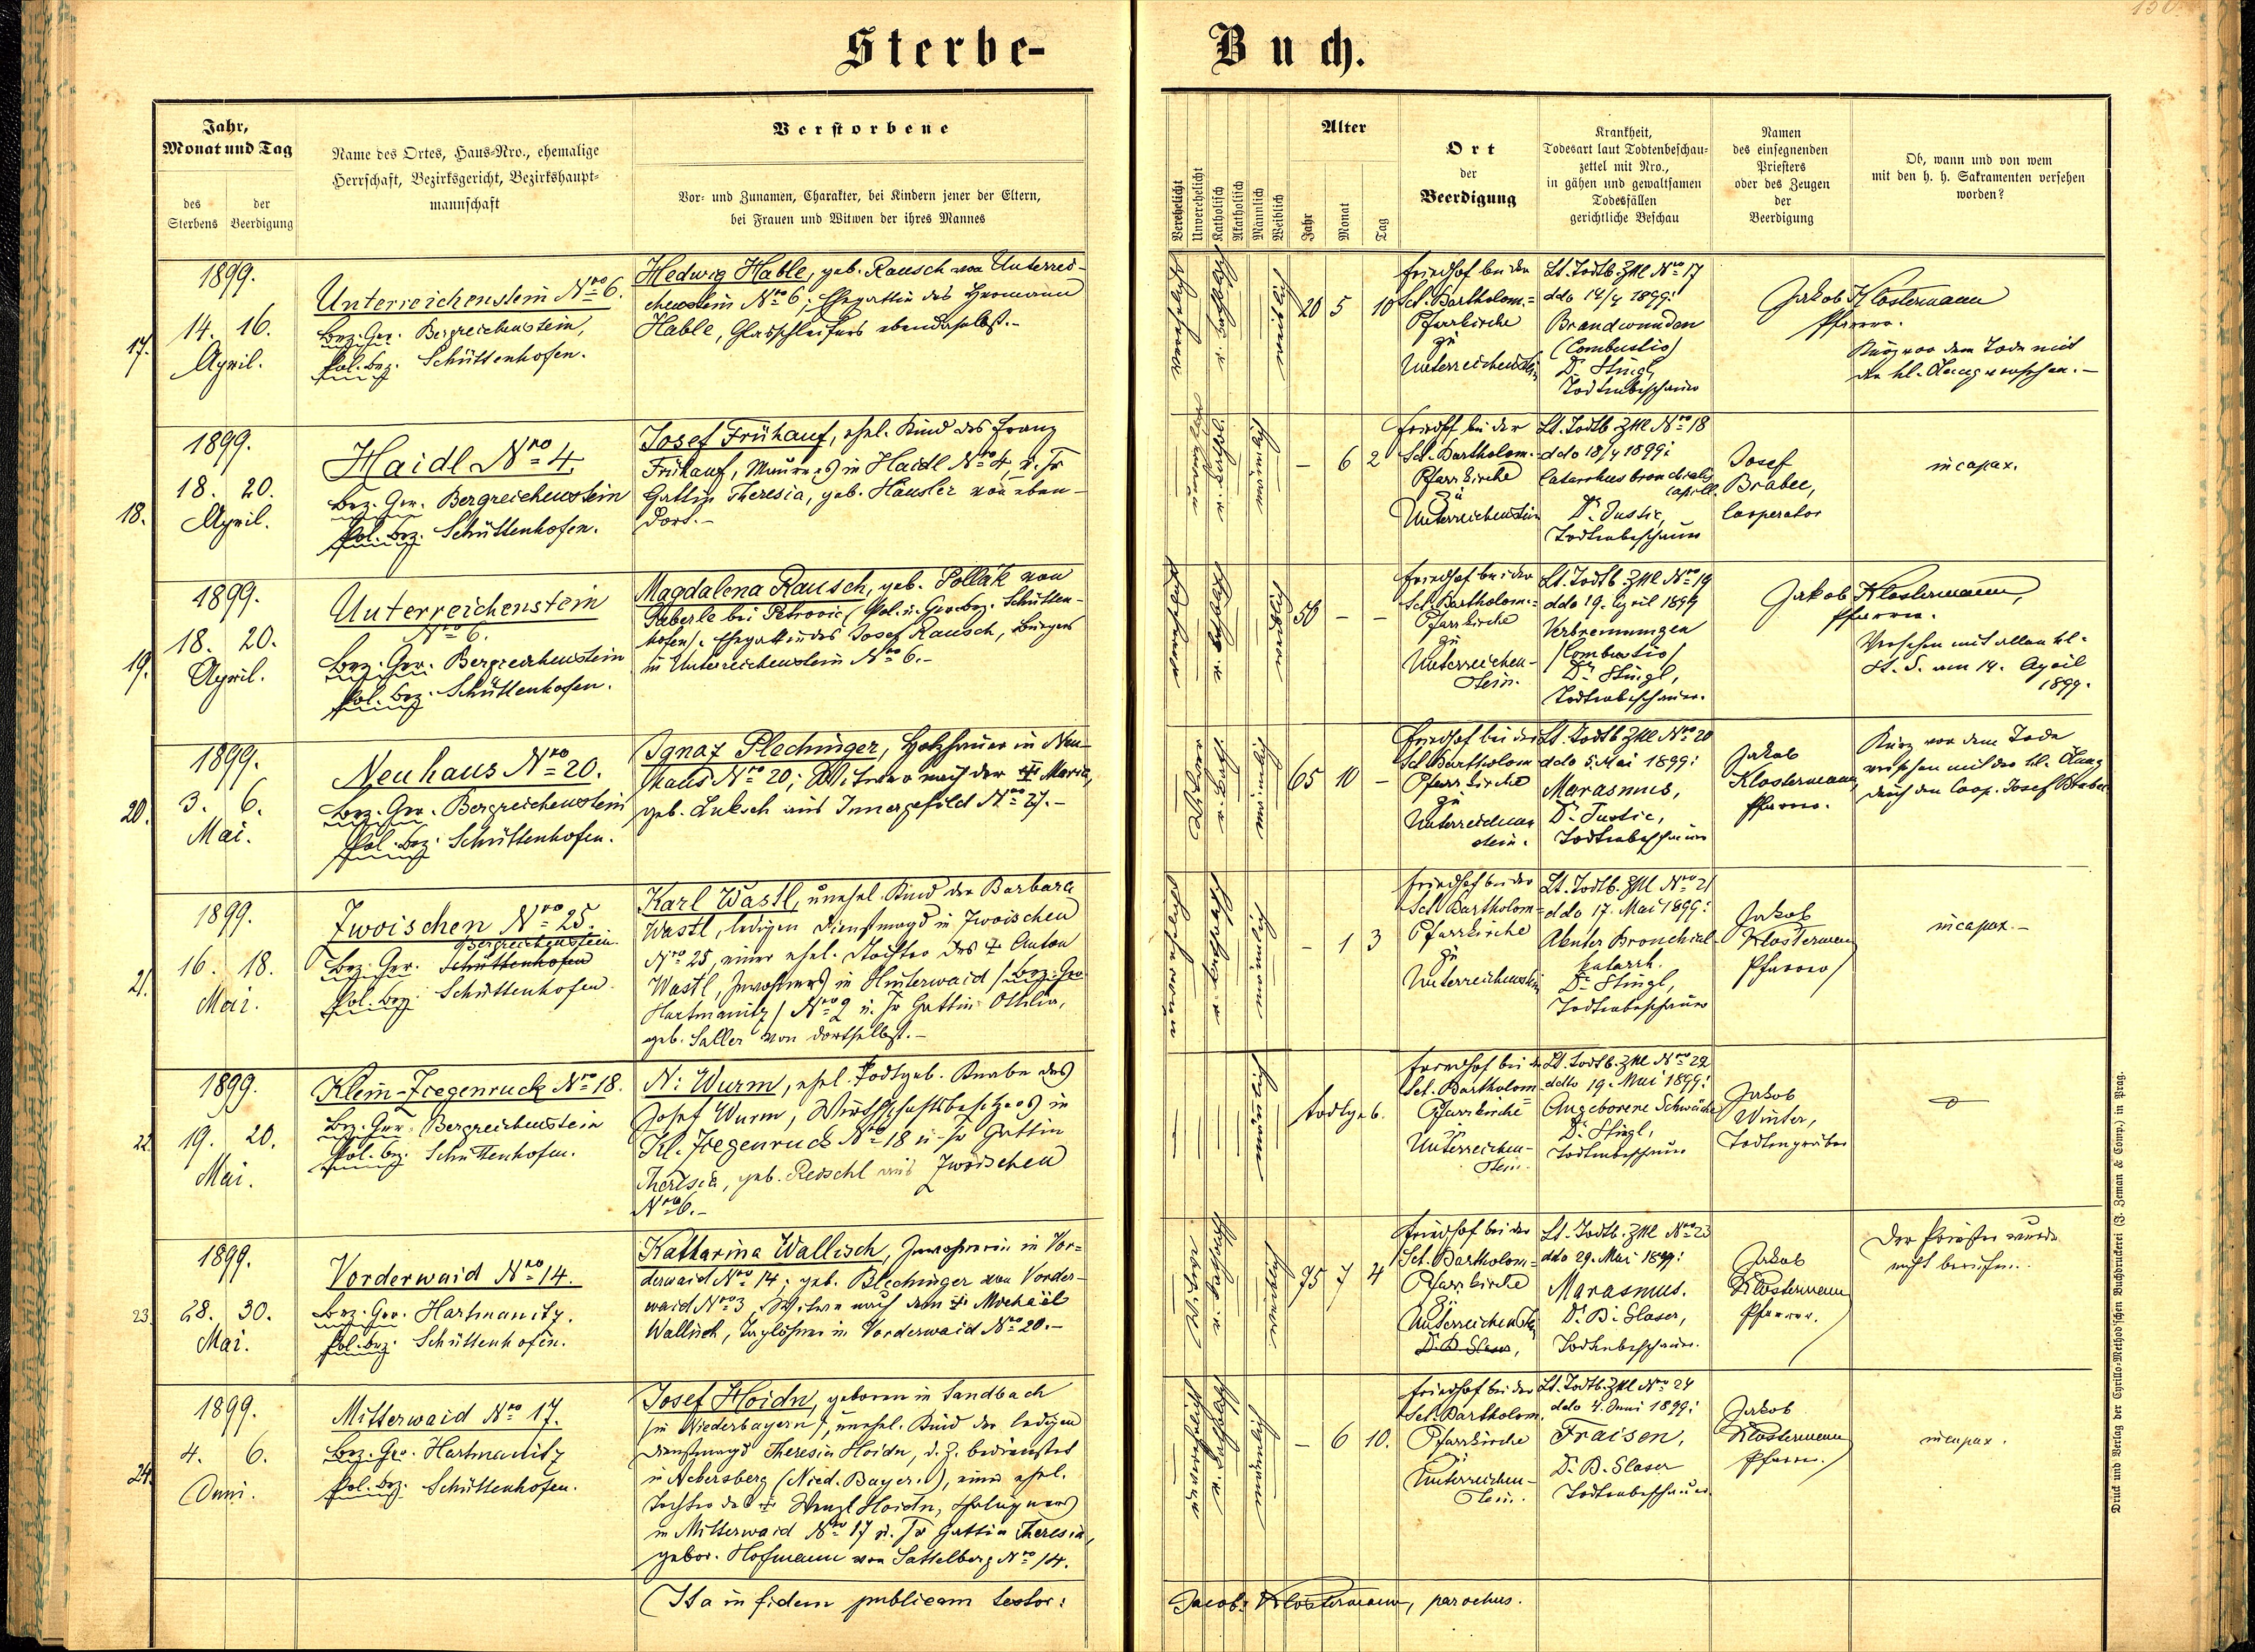 150.
Sterbe-Buch.
Jahr,
Monat und Tag
des Sterbens
der Beerdigung
Name des Ortes, Haus-Nro., ehemalige
Herrschaft, Bezirksgericht, Bezirkshaupt-
mannschaft
Verstorbene
Vor- und Zunamen, Charakter, bei Kindern jener der Eltern,
bei Frauen und Witwen der ihres Mannes
Verehelicht
Unverehelicht
Katholisch
Akatholisch
Männlich
Weiblich
Alter
Jahr
Monat
Tag
Ort
der
Beerdigung
Krankheit,
Todesart laut Todtenbeschau-
zettel mit Nro.,
in gähen und gewaltsamen
Todesfällen
gerichtliche Beschau
Namen
des einsegnenden
Priesters
oder des Zeugen
der
Beerdigung
Ob, wann und von wem
mit den h. h. Sakramenten versehen
worden?
17.
1899.
14. 16.
April.
Unterreichenstein Nro 6.
Bez. Ger. Bergreichenstein,
Pol. Bez. Schüttenhofen.
Hedwig Hable, geb. Rausch von Unterrei-
chenstein Nro 6; Ehegattin des Hermann
Hable, Glasschleifers ebendaselbst.-
verehelicht
katholisch
weiblich
20 5 10
Friedhof bei der
Sct. Bartholom.=
Pfarrkirche
zu
Unterreichenstein
Lt. Todtb. Zttl Nro 17
ddo 14/4 1899:
Brandwunden
(Combustio)
Dr. Stingl,
Todtenbeschauer
Jakob Klostermann
Pfarrer.
Kurz vor dem Tode mit
der hl. Ölung versehen.-
18.
1899.
18. 20.
April.
Haidl Nro 4.
Bez. Ger. Bergreichenstein
Pol. Bez. Schüttenhofen.
Josef Frühauf, ehel. Kind des Franz
Frühauf, Maurers in Haidl Nro 4, u. der
Gattin Theresia, geb. Häusler von eben-
dort.-
männlich
- 6 2
Friedhof bei der
Sct. Bartholom.
Pfarrkirche
zu
Unterreichenstein
Lt. Todtb Zttl Nro 18
ddo 18/4 1899:
Catarrhus bronchialis
capill.
Dr. Justic,
Todtenbeschauer
Josef
Brabec,
Cooperator
incapax.
19.
1899.
18. 20.
April.
Unterreichenstein
Nro 6.
Bez. Ger. Bergreichenstein
Pol. Bez. Schüttenhofen.
Magdalena Rausch, geb. Pollak von
Gaberle bei Petrovic (Pol. u. Ger. Bez. Schütten-
hofen); Ehegattin des Josef Rausch, Bürgers
in Unterreichenstein Nro 6.-
verehelicht
katholisch
weiblich
50 - -
Friedhof bei der
Sct. Bartholom.=
Pfarrkirche
zu
Unterreichen-
stein.
Lt. Todtb. Zttl Nro 19
ddo 19. April 1899
Verbrennungen
(Combustio)
Dr. Stingl,
Todtenbeschauer.
Jakob Klostermann,
Pfarrer.
Versehen mit allen hl.
St. S. am 14. April
1899.
20.
1899.
3. 6.
Mai.
Neuhaus Nro 20.
Bez. Ger. Bergreichenstein
Pol. Bez. Schüttenhofen.
Ignaz Plechinger, Holzhauer in Neu-
haus Nro 20; Witwer nach der † Maria,
geb. Luksch aus Innergefild Nro 27.-
Witwer
männlich
65 10 -
Friedhof bei der
Sct Bartholom
Pfarrkirche
zu
Unterreichen
stein.
Lt. Todtb Zttl Nro 20
ddo 5. Mai 1899:
Marasmus,
Dr. Justic,
Todtenbeschauer
Jakob
Klostermann,
Pfarrer.
Kurz vor dem Tode
versehen mit der hl. Ölung
durch den Coop. Josef Brabec
21.
1899.
16. 18.
Mai.
Zwoischen Nro 25.
Bergreichenstein.
Bez. Ger. Schüttenhofen
Pol. Bez. Schüttenhofen.
Karl Wastl, unehel. Kind der Barbara
Wastl, ledigen Dienstmagd in Zwoischen
Nro 25, einer ehel. Tochter des † Anton
Wastl, Inwohners in Hinterwaid (Bez. Ger
Hartmanitz) Nro 2 u. der Gattin Ottilia,
geb. Saller von dortselbst.-
männlich
- 1 3
Friedhof bei der
Sct. Bartholom=
Pfarrkirche
zu
Unterreichenstein
Lt. Todtb. Zttl Nro 21
ddo 17. Mai 1899:
Akuter Bronchial-
katarrh.
Dr. Stingl,
Todtenbeschauer
Jakob
Klostermann
Pfarrer
incapax.-
22.
1899.
19. 20.
Mai.
Klein-Ziegenruck Nro 18.
Bez. Ger. Bergreichenstein
Pol. Bez. Schüttenhofen.
N: Wurm, ehel. todtgeb. Knabe des
Josef Wurm, Wirthschaftsbesitzers in
Kl. Ziegenruck Nro 18 u. der Gattin
Theresia, geb. Reischl aus Zwoischen
Nro 6.-
männlich
todtgeb.
Friedhof bei der
Sct. Bartholom
Pfarrkirche
zu
Unterreichen-
stein.
Lt. Todtb. Zttl Nro 22
ddto 19. Mai 1899:
Angeborene Schwäche
Dr. Stingl,
Todtenbeschauer
Jakob
Winter,
Todtengräber
23.
1899.
28. 30.
Mai.
Vorderwaid Nro 14.
Bez. Ger. Hartmanitz.
Pol. Bez. Schüttenhofen.
Katharina Wallisch, Inwohnerin in Vor=
derwaid Nro 14; geb. Blechinger von Vorder-
waid Nro 3, Witwe nach dem † Michael
Wallisch, Taglöhner in Vorderwaid Nro 20.-
Witwe
katholisch
weiblich
75 7 4
Friedhof bei der
Sct. Bartholom=
Pfarrkirche
zu
Unterreichenstein
Dr. B. Glaser,
Lt. Todtb. Zttl Nro 23
ddo 29. Mai 1899:
Marasmus.
Dr. B. Glaser,
Todtenbeschauer.
Jakob
Klostermann
Pfarrer.
Der Priester wurde
nicht berufen.
24.
1899.
4. 6.
Juni.
Mitterwaid Nro 17.
Bez. Ger. Hartmanitz
Pol. Bez. Schüttenhofen.
Josef Hoidn, geboren in Sandbach
(in Niederbayern), unehel. Kind der ledigen
Dienstmagd Theresia Hoidn, d. Z. bedienstet
in Nebersberg (Nied. Bayern), einer ehel.
Tochter des † Wenzl Hoidn,
in Mitterwaid Nro 17 u. der Gattin Theresia,
gebor. Hofmann von Sattelberg Nro 14.
unverehelicht
katholisch
männlich
- 6 10.
Friedhof bei der
Sct. Bartholom.
Pfarrkirche
zu
Unterreichen-
stein.
Lt. Todtb. Zttl Nro 24
ddo 4. Juni 1899:
Fraisen,
Dr. B. Glaser
Todtenbeschauer
Jakob
Klostermann
Pfarrer.
incapax.
Ita in fidem publicam testor: Jacob. Klostermann, parochus.
Druck und Verlag der Cyrillo-Method'schen Buchdruckerei (J. Zeman & Comp.) in Prag.